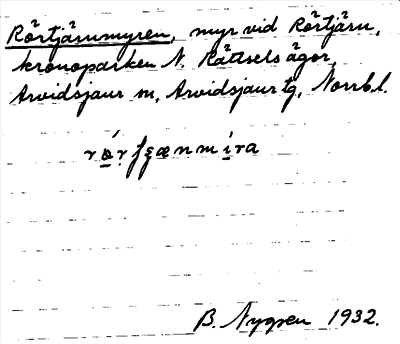 Rörtjärnmyren, myr vid Rörtjärn,
kronoparken N. Rättsels ägor,
Arvidsjaur sn, Arvidsjaur tg, Norrb.l.
B. Nygren 1932.